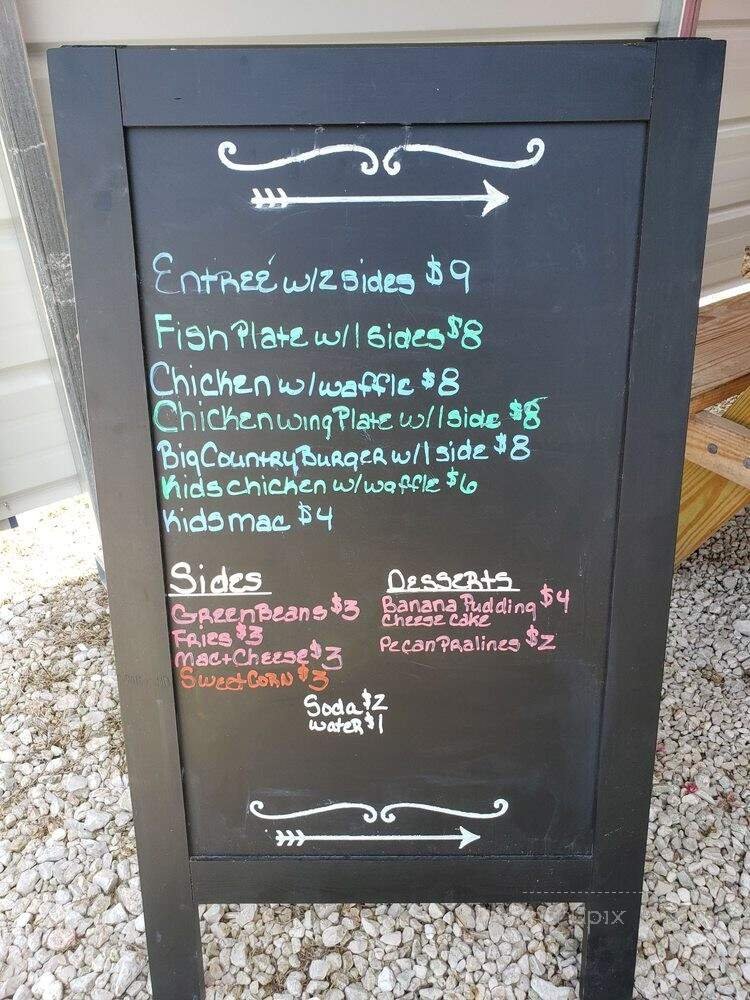 Entrée w/2 sides $9
Fish Plate w/1 sides $8
Chicken w/waffle $8
Chicken wing Plate w/1 side $8
Big Country Burger w/1 side $8
Kids chicken w/waffle $6
Kids mac $4
Sides
Green Beans $3
Fries $3
Mac+Cheese $3
Sweet Corn $3
Desserts
Banana Pudding $4
cheese cake
Pecan Pralines $2
Soda $2
water $1